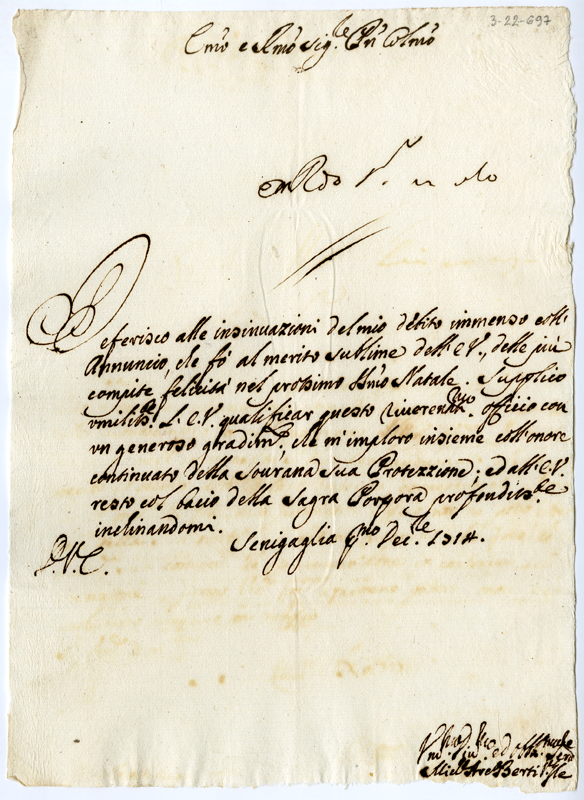 3-22-697
Emo e Rmo Sigle Pñ Colmo
Deferisco alle insinuazioni del mio debito immenso coll'
Annuncio, che fò al merito sublime dell'E.V., delle più
compite felicità nel prossimo Smo Natale. Supplico
umilite L'E.V. qualificar questo riverentmo officio con
un generoso gradimto, che m'imploro insieme coll'onore
continuato della Sourana sua Protezzione; ed all'E.V.
resto col bacio della Sagra Porpora profondite
inclinandomi.
Senigaglia pmo Decle 1714.
D.V.E.